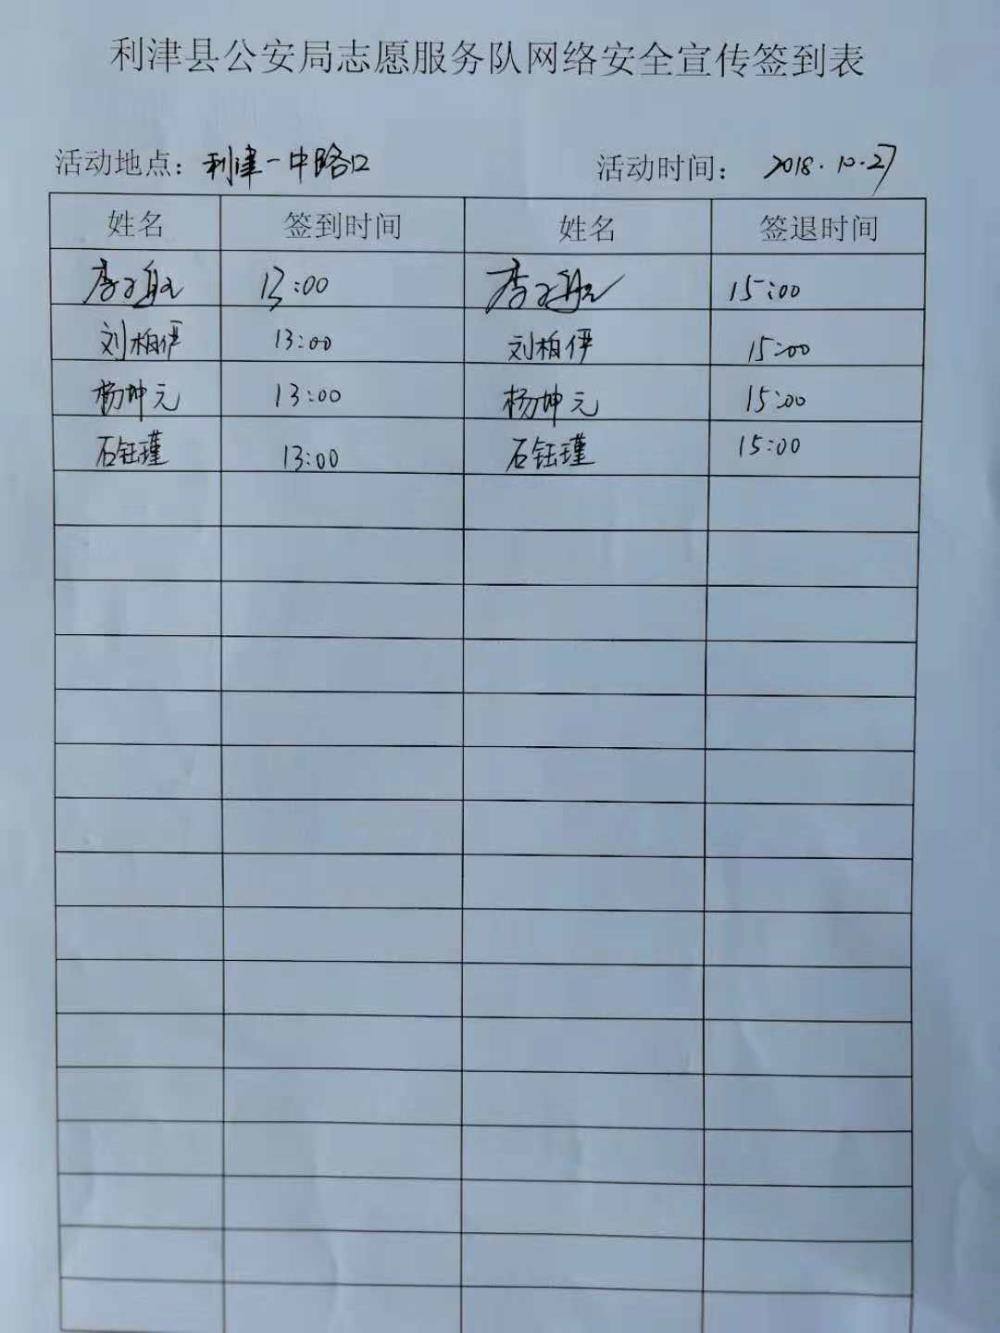 利津县公安局志愿服务队网络安全宣传签到表
活动地点：利津一中路口 活动时间： 2018.10.27
姓名 签到时间 姓名 签退时间
13:00 15:00
刘柏伊 13:00 刘柏伊 15:00
杨坤元 13:00 杨坤元 15:00
石钰瑾 13:00 石钰瑾 15:00